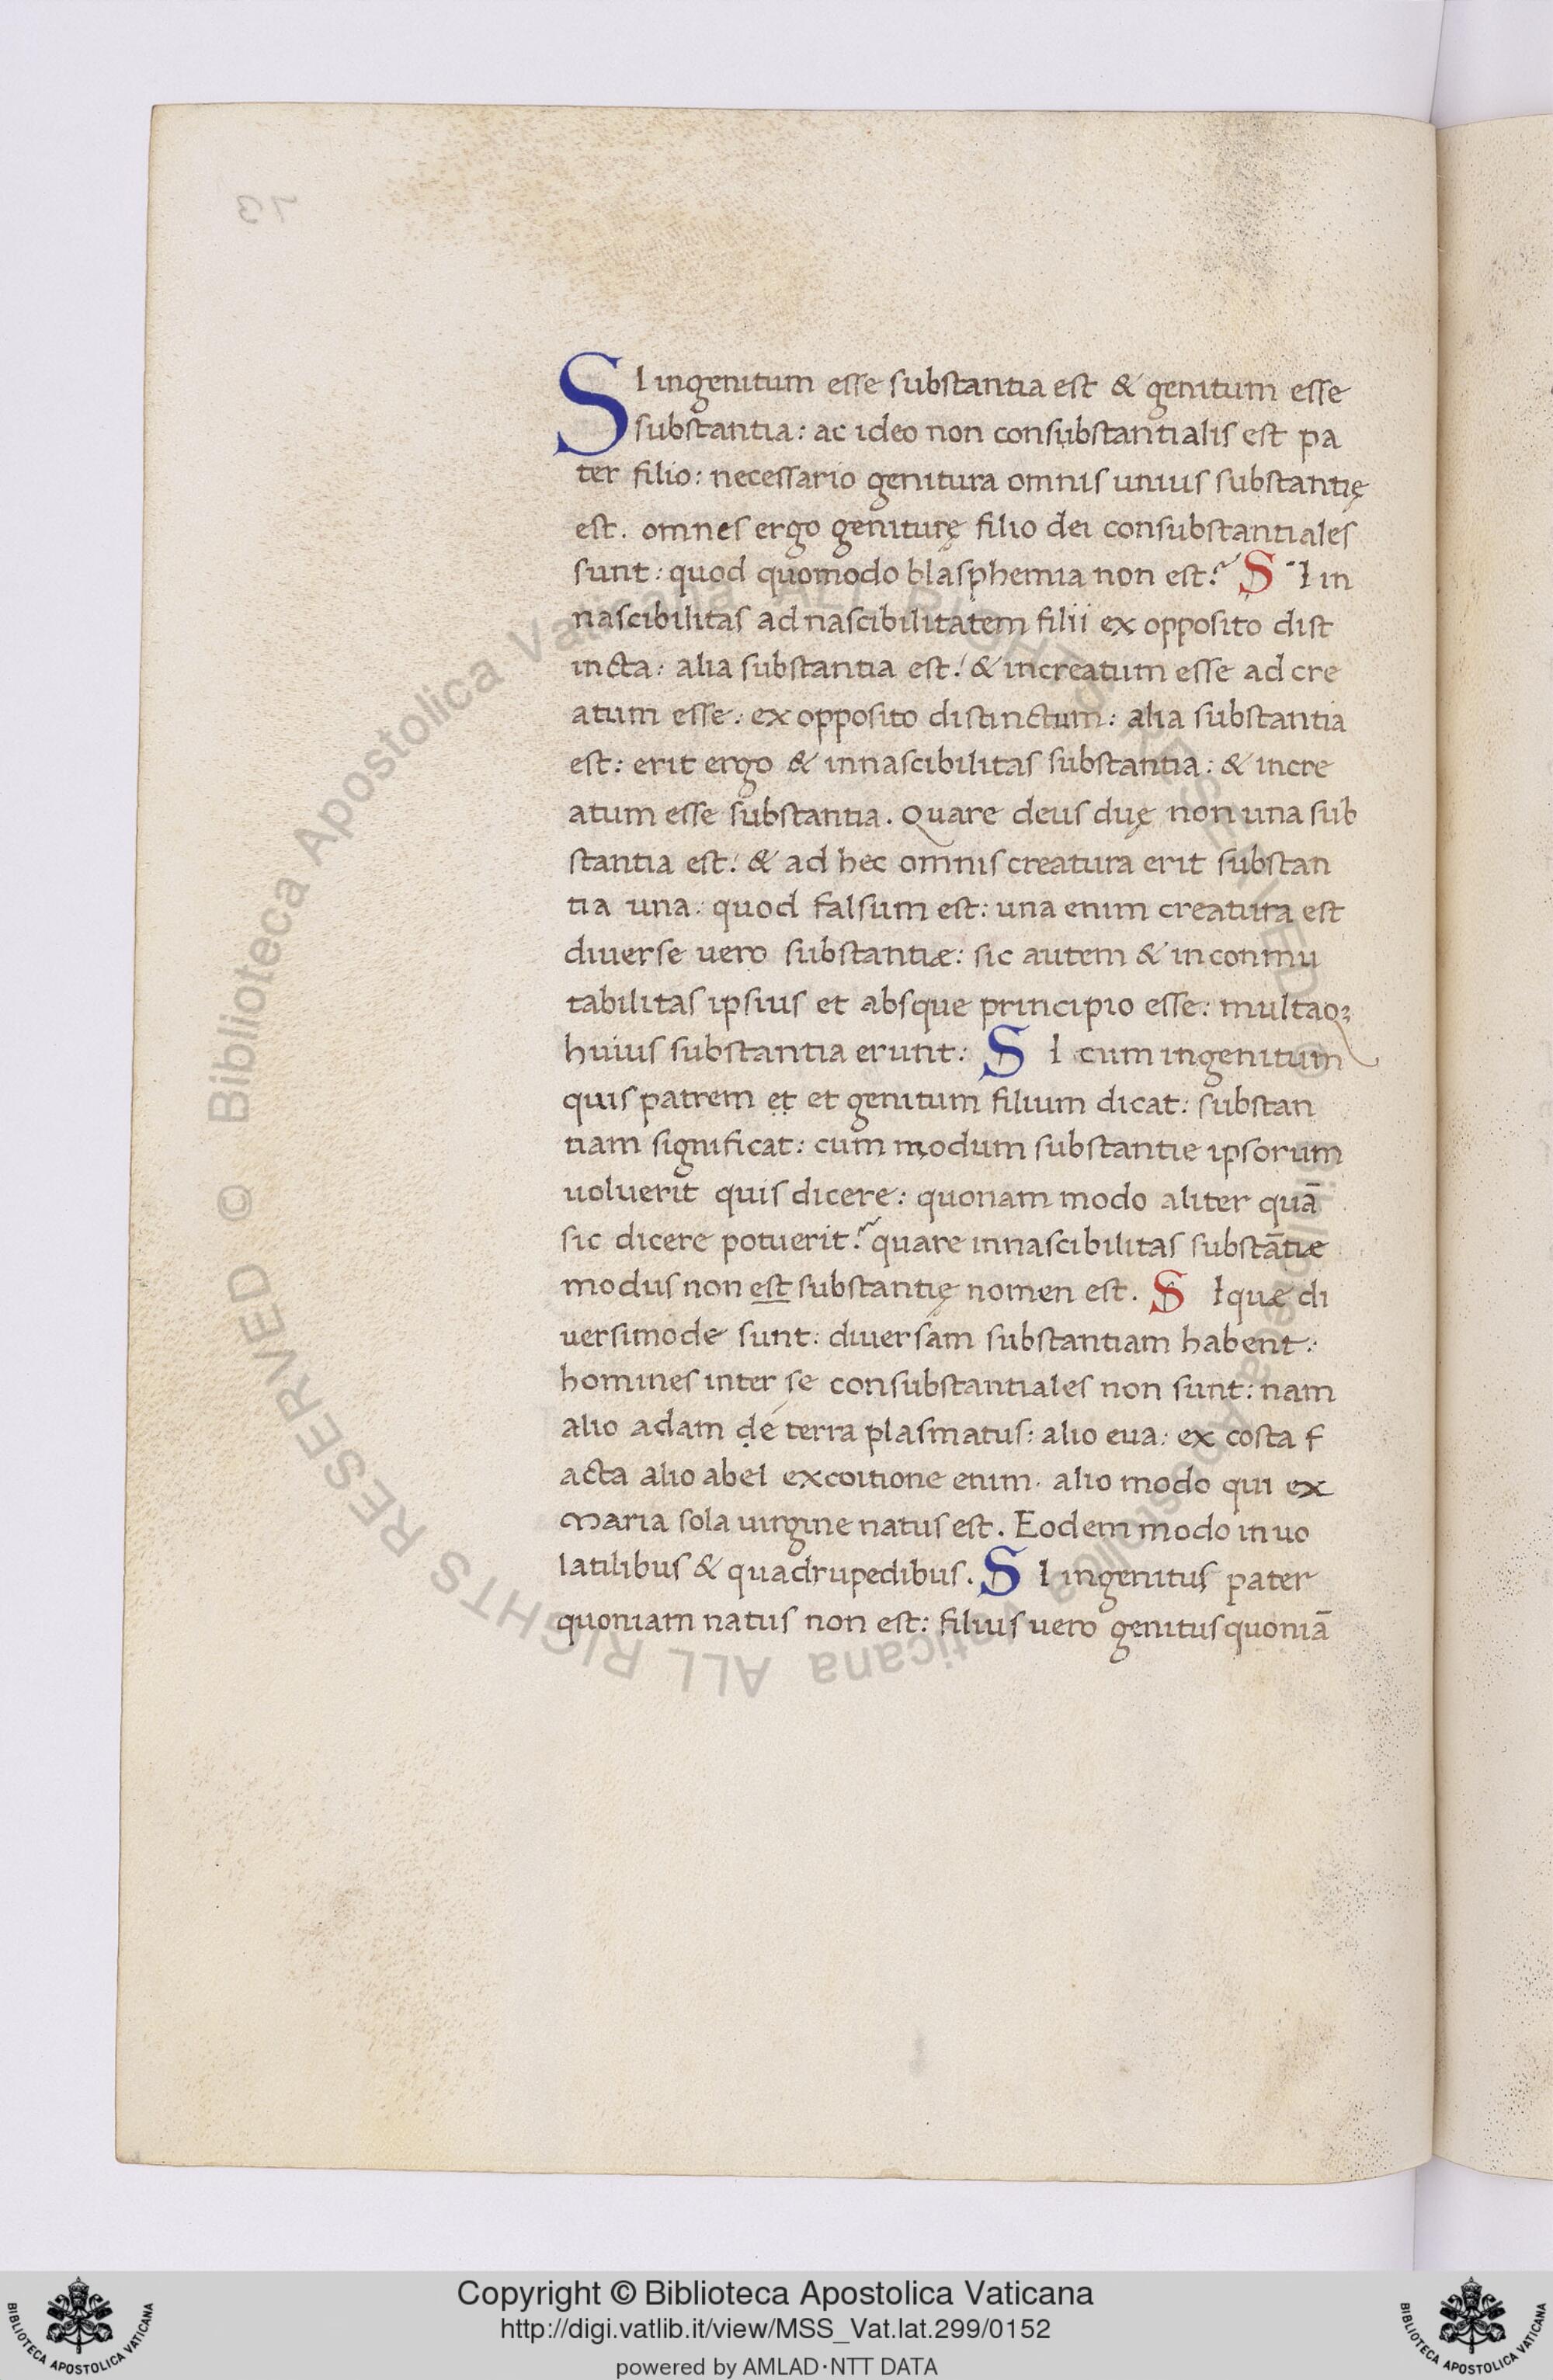 SI ingenitum esse substantia est & genitum esse
substantia: ac ideo non consubstantialis est pa
ter filio: necessario genitura omnis unius substantię
est. omnes ergo geniturę filio dei consubstantiales
sunt: quod quomodo blasphemia non est? SI in
nascibilitas ad nascibilitatem filii ex opposito dist
incta: alia substantia est! & increatum esse ad cre
atum esse: ex opposito distinctum: alia substantia
est: erit ergo & innascibilitas substantia: & incre
atum esse substantia. Quare deus duę non una sub
stantia est! & ad hec omnis creatura erit substan
tia una: quod falsum est: una enim creatura est
diuerse uero substantiæ: sic autem & inconmu
tabilitas ipsius et absque principio esse: multaqꝫ
huius substantia erunt: SI cum ingenitum
quis patrem et et genitum filium dicat: substan
tiam significat: cum modum substantie ipsorum
uoluerit quis dicere: quonam modo aliter quā
sic dicere potuerit? quare innascibilitas substātiæ
modus non est substantię nomen est. SI quæ di
uersimode sunt: diuersam substantiam habent:
homines inter se consubstantiales non sunt: nam
alio adam de terra plasmatus: alio eua: ex costa f
acta alio abel excoitione enim. alio modo qui ex
Maria sola uirgine natus est. Eodem modo in uo
latilibus & quadrupedibus. SI ingenitus pater
quoniam natus non est: filius uero genitus quoniā
13
© Biblioteca Apostolica Vaticana ALL RIGHTS RESERVED © Biblioteca Apostolica Vaticana ALL RIGHTS RESERVED
Copyright © Biblioteca Apostolica Vaticana
http://digi.vatlib.it/view/MSS_Vat.lat.299/0152
powered by AMLAD·NTT DATA
BIBLIOTECA APOSTOLICA VATICANA
BIBLIOTECA APOSTOLICA VATICANA